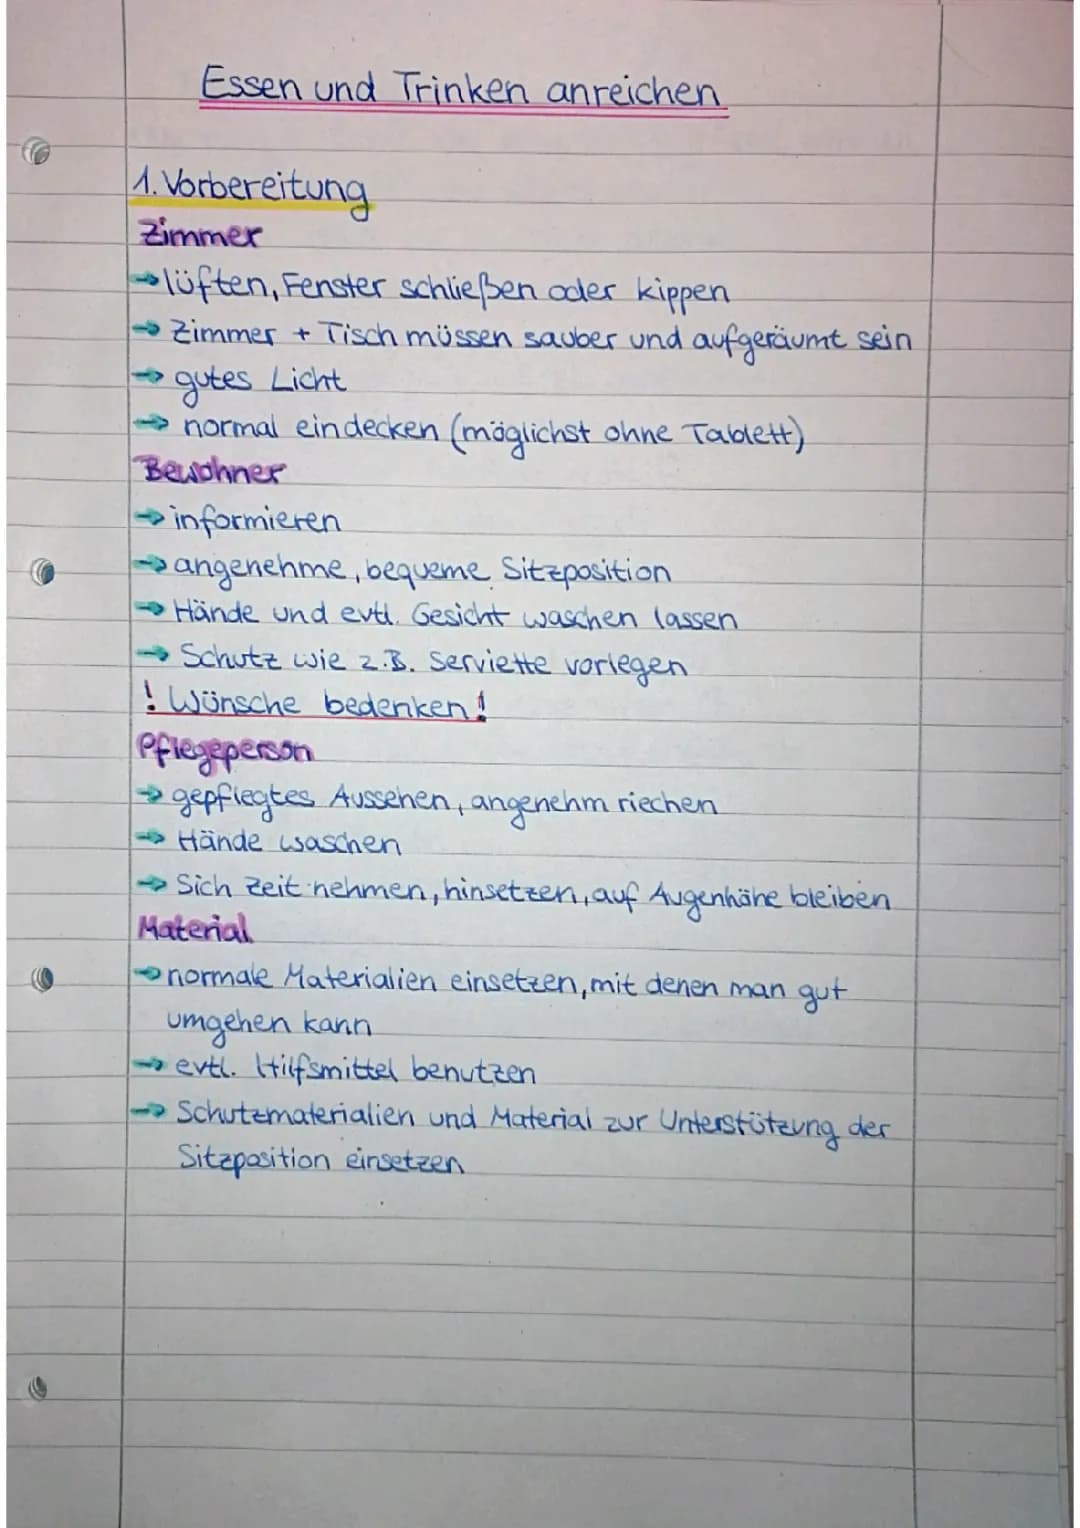 Essen und Trinken anreichen
1. Vorbereitung
Zimmer
→ lüften, Fenster schließen oder kippen
→ Zimmer + Tisch müssen sauber und aufgeräumt sein
→ gutes Licht
→ normal eindecken (möglichst ohne Tablett)
Bewohner
→ informieren
→ angenehme, bequeme Sitzposition
→ Hände und evtl. Gesicht waschen lassen
→ Schutz wie z.B. Serviette vorlegen
! Wünsche bedenken!
Pflegeperson
→ gepflegtes Aussehen, angenehm riechen
→ Hände waschen
→ Sich Zeit nehmen, hinsetzen, auf Augenhöhe bleiben
Material
→ normale Materialien einsetzen, mit denen man gut
umgehen kann
→ evtl. Hilfsmittel benutzen
→ Schutzmaterialien und Material zur Unterstützung der
Sitzposition einsetzen